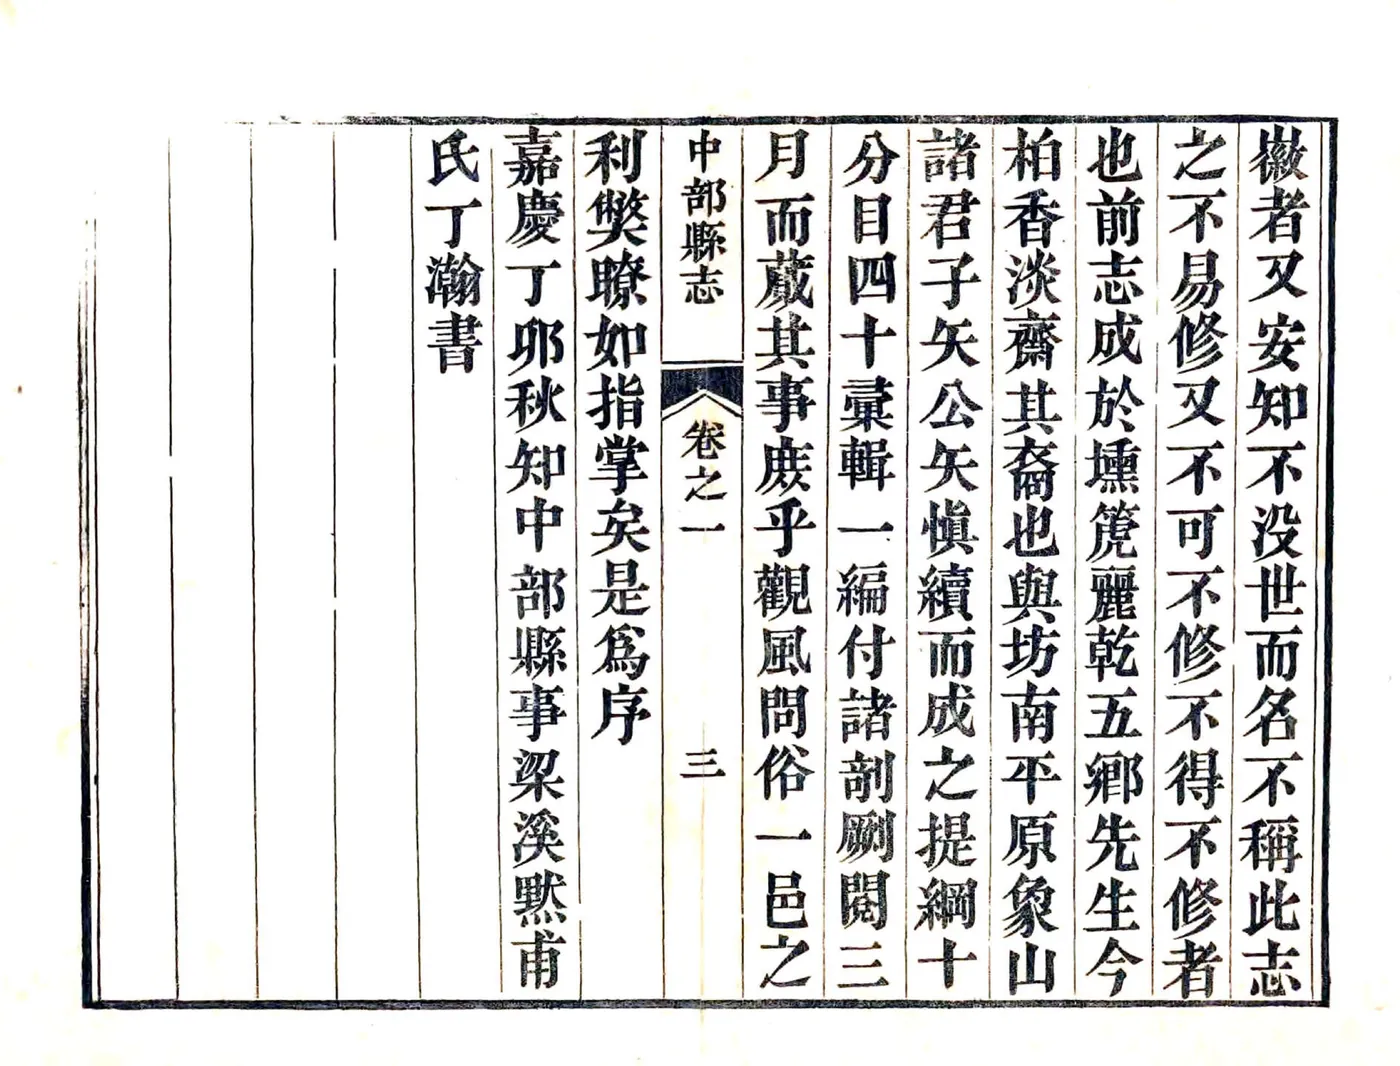 徽者又安知不没世而名不稱此志
之不易修又不可不修不得不修者
也前志成於壎篪麗乾五鄉先生今
柏香淡齋其裔也與坊南平原象山
諸君子矢公矢慎續而成之提綱十
分目四十彙輯一編付諸剞劂閱三
月而蕆其事庶乎觀風問俗一邑之
中部縣志 卷之一 三
利獘瞭如指掌矣是爲序
嘉慶丁卯秋知中部縣事梁溪默甫
氏丁瀚書